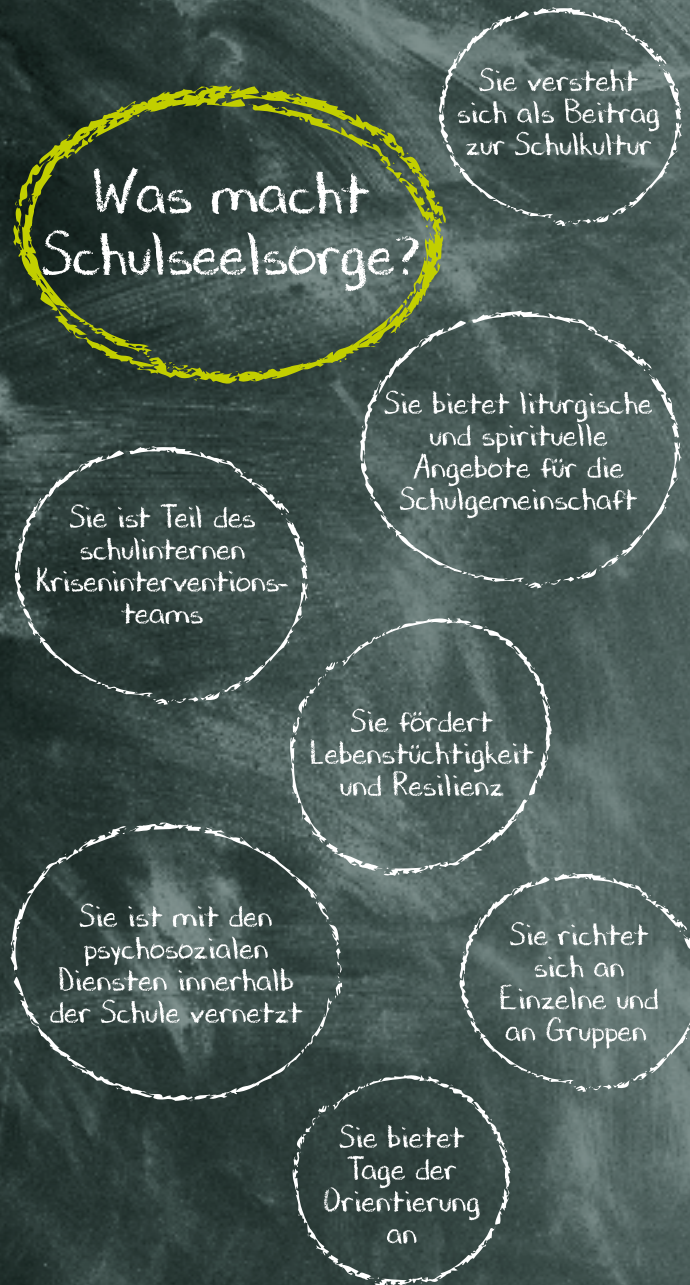 Was macht
Schulseelsorge?
Sie versteht
sich als Beitrag
zur Schulkultur
Sie bietet liturgische
und spirituelle
Angebote für die
Schulgemeinschaft
Sie ist Teil des
schulinternen
Kriseninterventions-
teams
Sie fördert
Lebenstüchtigkeit
und Resilienz
Sie ist mit den
psychosozialen
Diensten innerhalb
der Schule vernetzt
Sie richtet
sich an
Einzelne und
an Gruppen
Sie bietet
Tage der
Orientierung
an